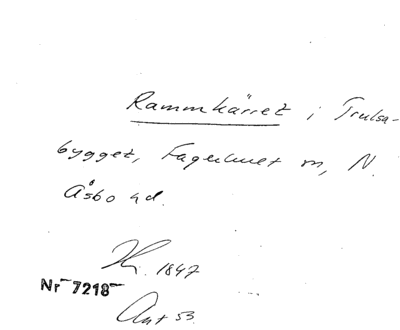 Rammkärret i Trulsa-
bygget, Fagerhult sn, N.
Åsbo hd.
Kr. 1847
Nr 7218
Ant 53